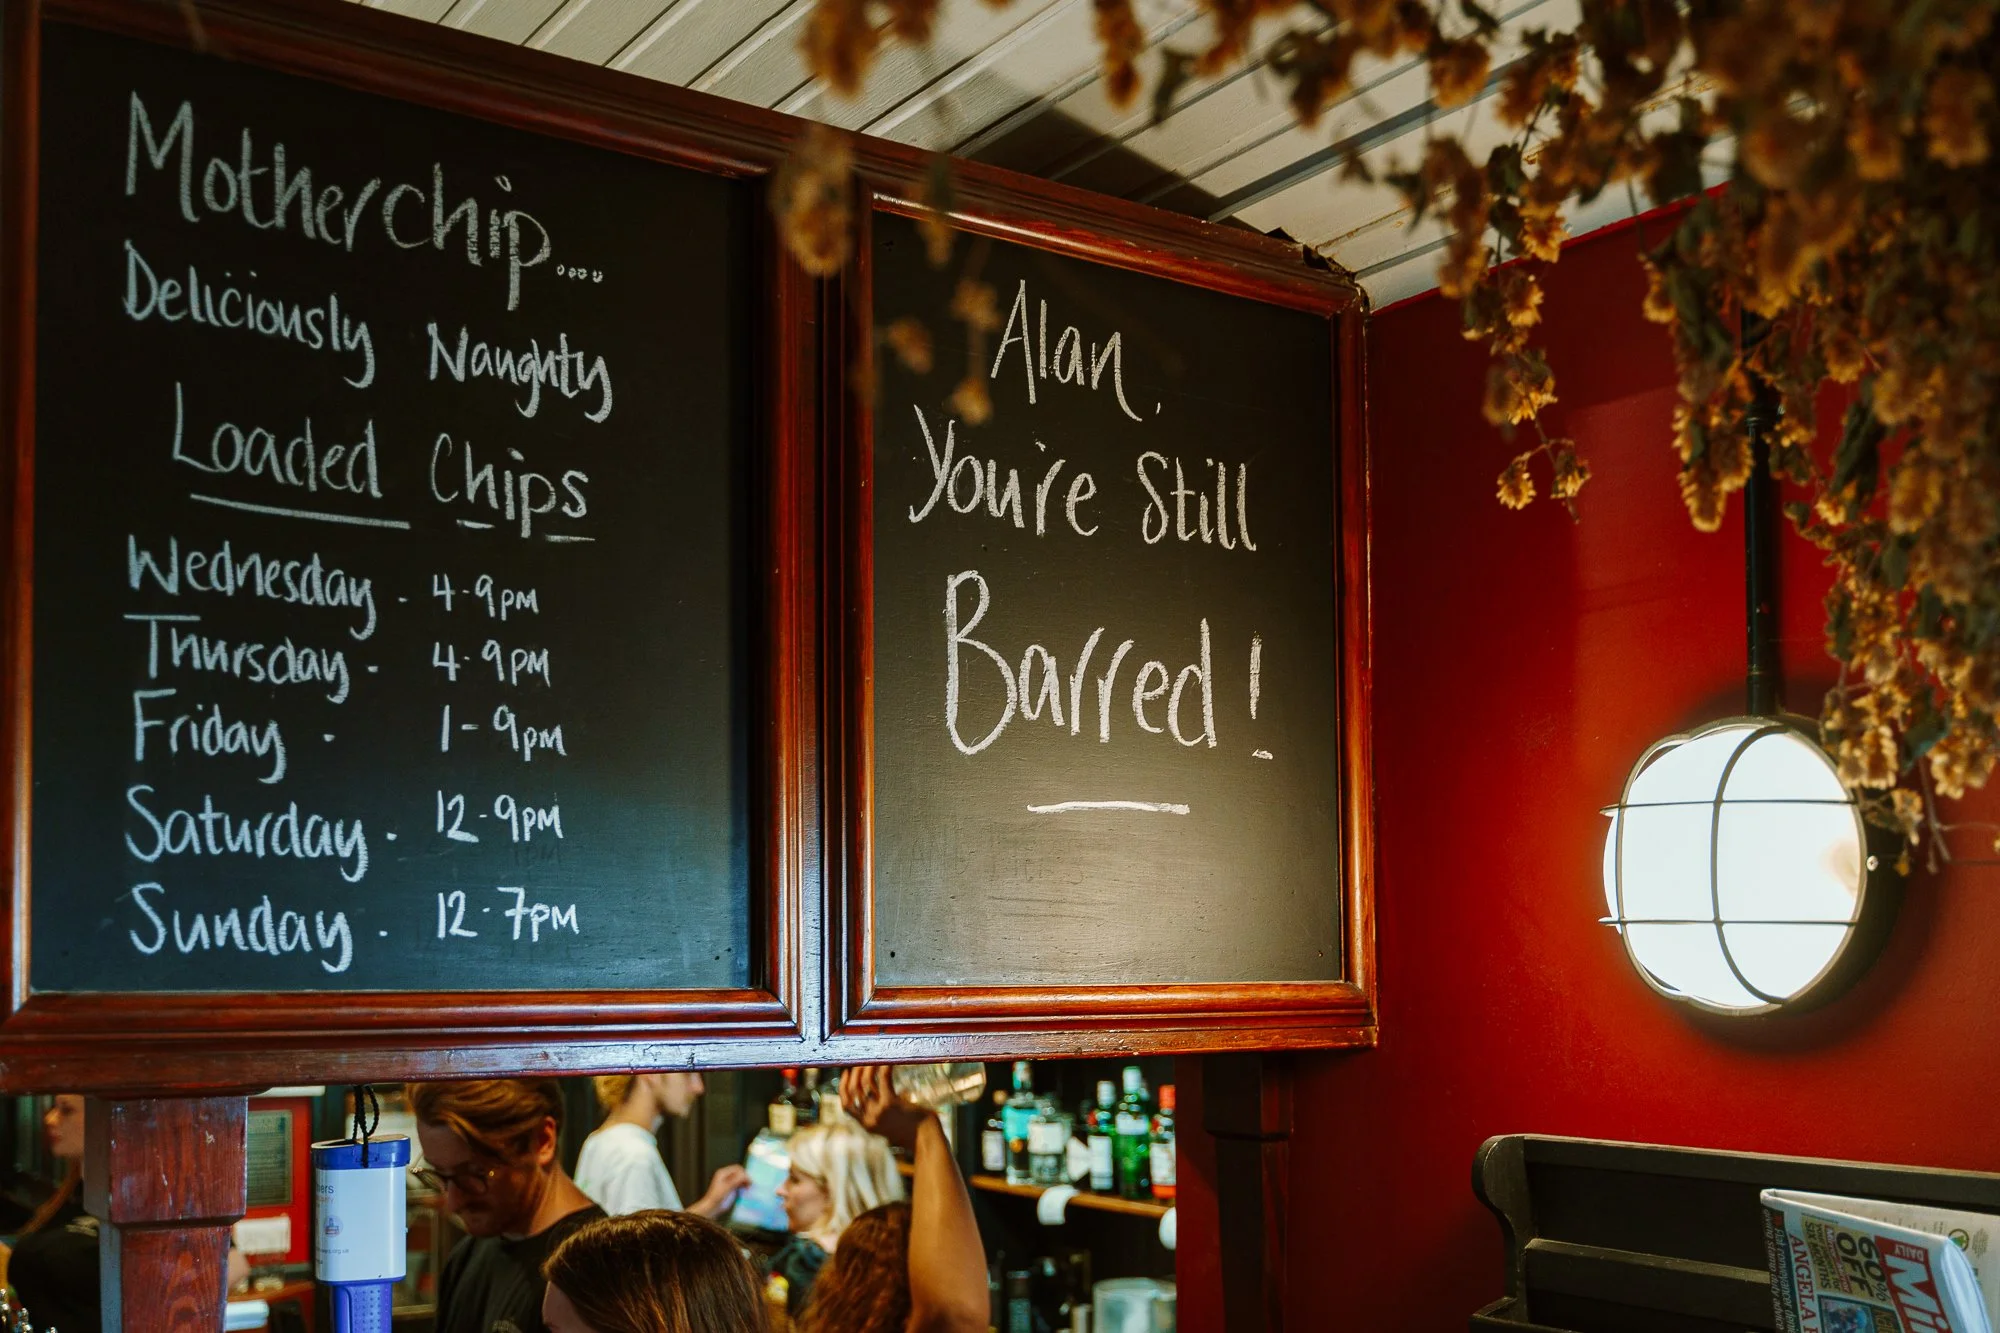 Motherchip....
Deliciously Naughty
Loaded Chips
Wednesday - 4-9PM
Thursday - 4-9PM
Friday - 1-9PM
Saturday - 12-9PM
Sunday - 12-7PM
Alan,
You're Still
Barred!
DAILY
60%
OFF
ANGELA